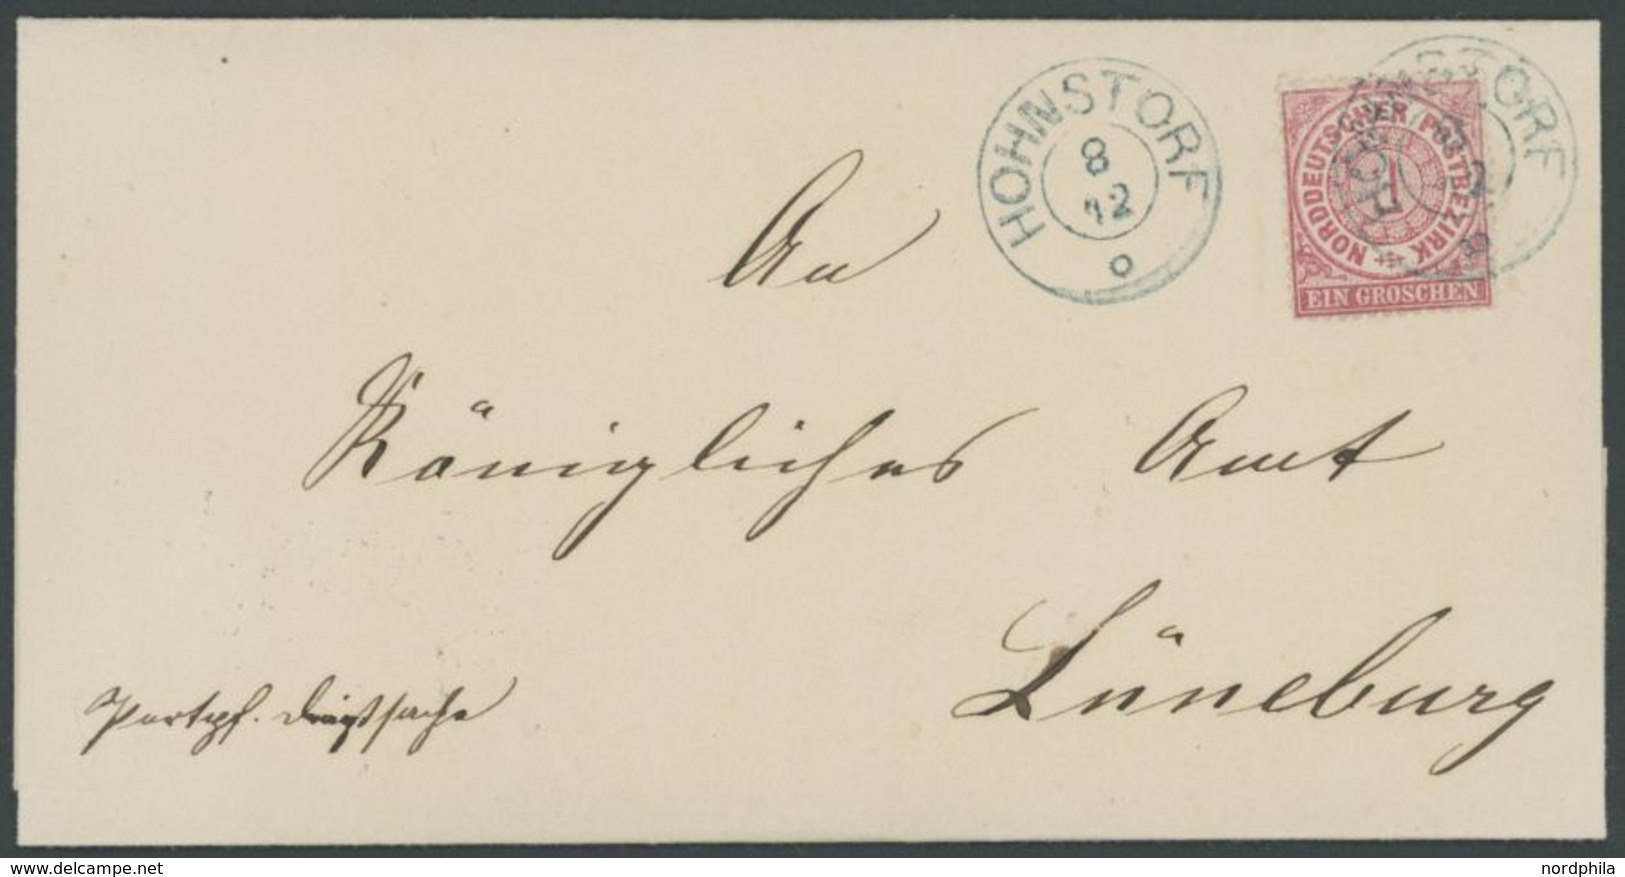 HOHNSTORF
8
12
NORDDEUTSCHER POSTBEZIRK
1
EIN GROSCHEN
An
Königliches Amt
Lüneburg
Portopf. Dienstsache
www.delcampe.net
nordphila